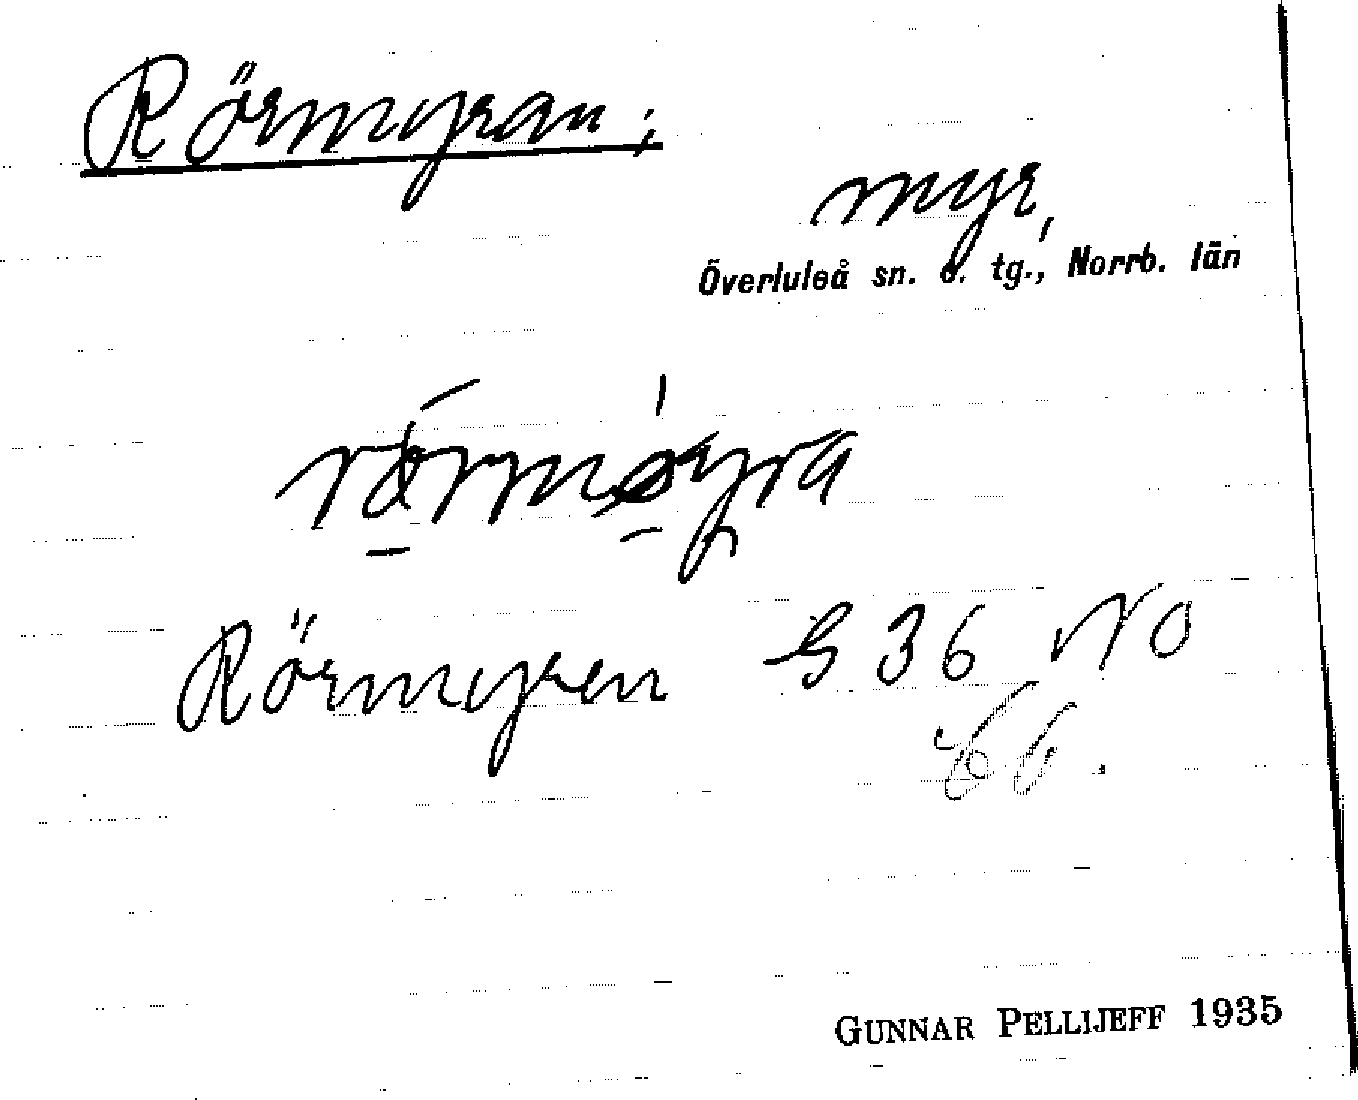 Rörmyran;
myr,
Överluleå sn. o. tg., Norrb. län
Rörmyren G 36 NO
GUNNAR PELLIJEFF 1935